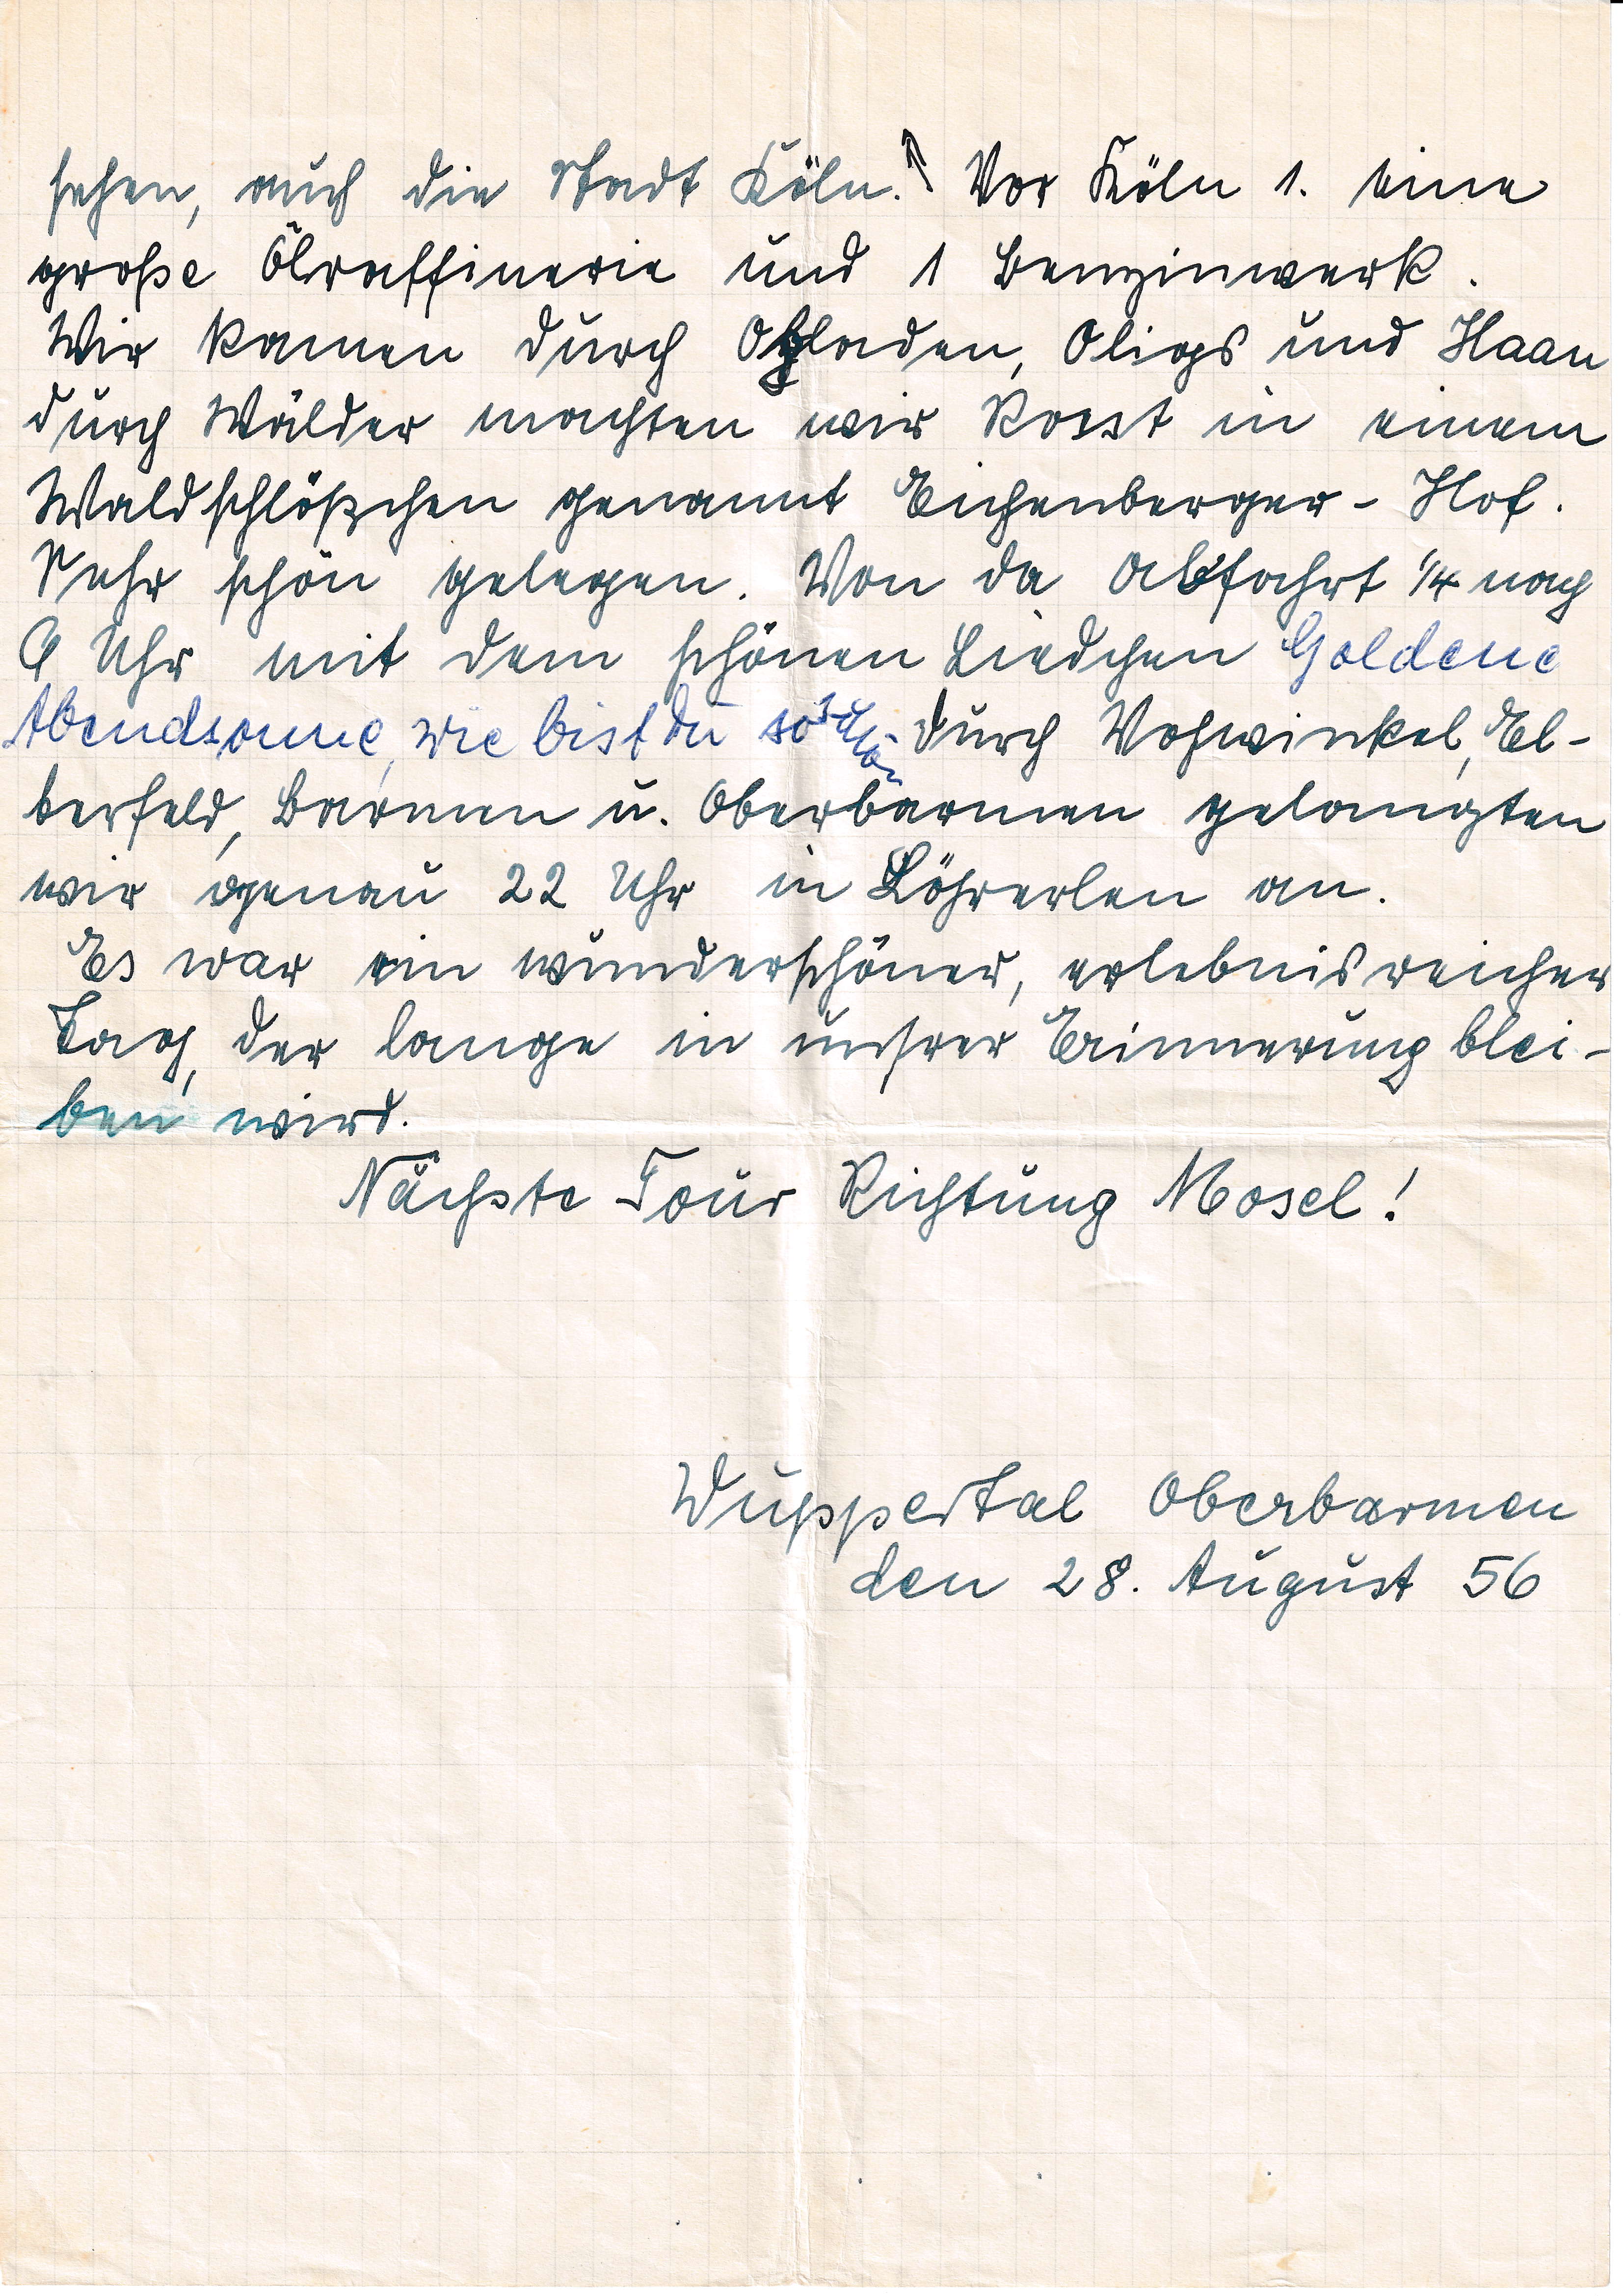 sehen, auch die Stadt Köln. Vor Köln 1. eine
große Ölraffinerie und 1 Benzinwerk.
Wir kamen durch Opladen, Oligs und Haan
durch Wälder machten wir Rasst in einem
Waldschlößchen genannt Eichenberger-Hof.
Sehr schön gelegen. Von da Abfahrt 1/4 nach
9 Uhr mit dem schönen Liedchen Goldene
Abendsonne, wie bist du so schön durch Vohwinkel, El-
berfeld, Barmen u. Oberbarmen gelangten
wir genau 22 Uhr in Löhrerlen an.
Es war ein wunderschöner, erlebnisreicher
Tag, der lange in unsrer Erinnerung blei-
ben wird.
Nächste Tour Richtung Mosel!
Wuppertal Oberbarmen
den 28. August 56